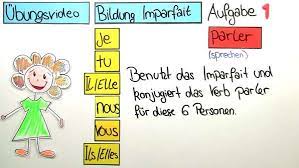 Übungsvideo
Bildung Imparfait
Aufgabe 1
je
parler
(sprechen)
tu
IL/Elle
Benutzt das Imparfait und
konjugiert das Verb parler
für diese 6 Personen.
nous
vous
Ils/Elles